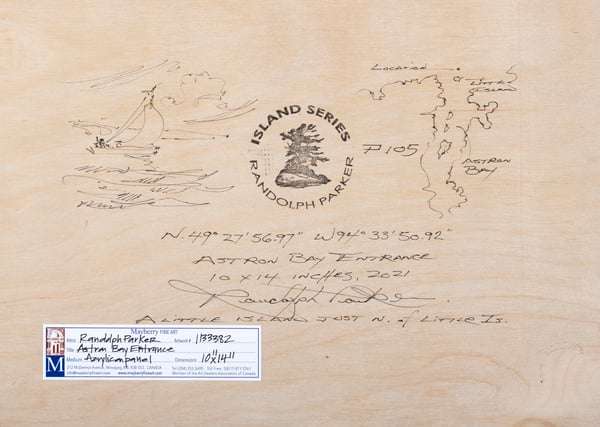 LOCATION
LITTLE
ISLAND
ISLAND SERIES
RANDOLPH PARKER
P105
ASTRON
BAY
N. 49° 27' 56.97" W94° 33' 50.92"
ASTRON BAY ENTRANCE
10 X 14 INCHES, 2021
Randolph Parker.
A LITTLE ISLAND JUST N. of LITTLE IS.
Mayberry FINE ART
Artist Randolph Parker Artwork # 1133382
Title Astron Bay Entrance
Medium Acrylic on panel Dimensions 10"x14"
212 McDermot Avenue, Winnipeg, MB, R3B 0S3, CANADA Tel (204) 255 5690 Toll Free: 1(877) 871 9261
info@mayberryfineart.com www.mayberryfineart.com Member of the Art Dealers Association of Canada
M